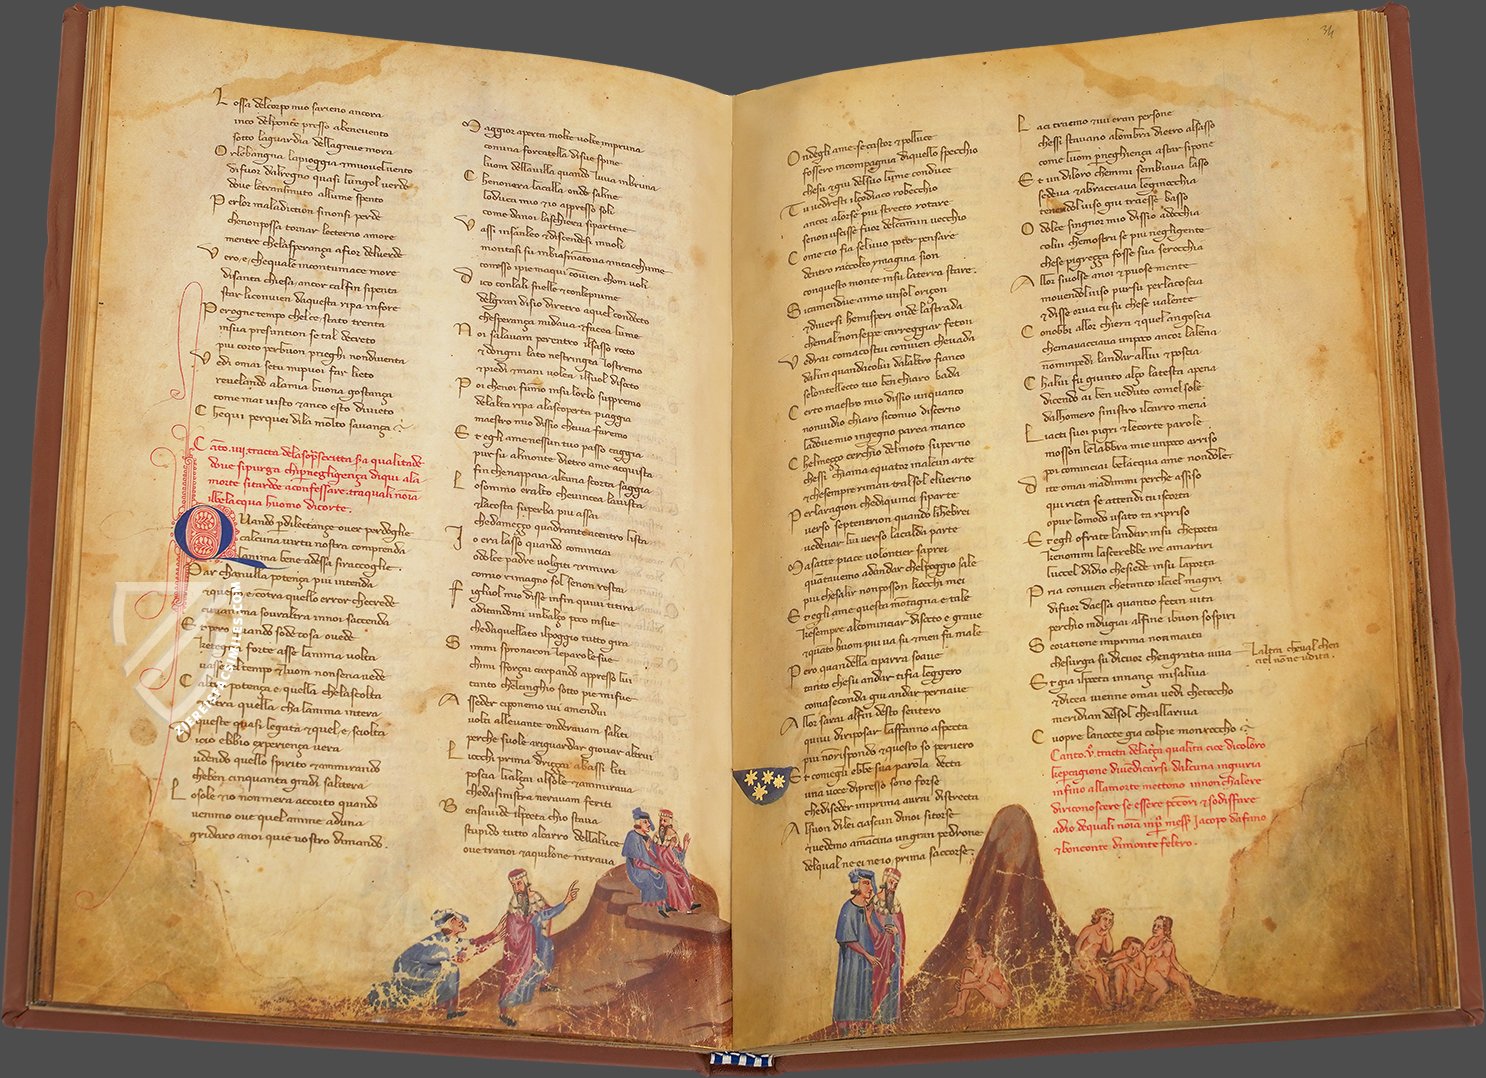 Lossa delcorpo mio sarieno ancora
inco delponte presso abenevento
sotto laguardia dellagreve mora
Orlebangna lapioggia & muovelvento
difuor dalregno quasi lungol verde
dove letransmuto allume spento
Perlor maladiction sinonsi perde
chenonpossa tornar leterno amore
mentre chelasperança afior delverde
Vero e chequale incontumace more
disanta chiesa ancor calfin sipenta
star liconvien daquesta ripa infore
Perogne tempo chelce stato trenta
insua presuntion se tal decreto
piu corto perbuon prieghi nondiventa
Vedi omai setu mipuoi far lieto
revelando alamia buona gostança
come mai visto & anco esto divieto
Chequi perquei dila molto savança
Canto .iiij. tracta delasoprascritta qualitade
dove sipurga chi per negligença diqui ala
morte sitarde aconfessare. traquali noia
ilbelacqua huomo dicorte.
Quando per dilectançe over perdoglie
calcuna virtu nostra comprenda
lanima bene adessa siraccoglie.
Par chanulla potença piu intenda
questo e contra quello error checrede
cunanima sovraltra innoi saccenda
Et pero quando sode cosa ovede
ketegna forte asse lanima volta
vassel tempo & luom nonsena vede
Caltra potença e quella chelascolta
& altra quella cha lanima intera
queste quasi legata & quel e sciolta
Dicio ebbio experiença vera
udendo quello spirito & ammirando
cheben cinquanta gradi salitera
Losole & io nonmera accorto quando
venimo ove quel anime aduna
gridaro anoi quie vostro dimando.
Maggior aperta molte volte impruna
conuna forcatella disue spine
luom dellavilla quando luva imbruna
Chenonera lacalla onde saline
loduca mio & io appresso soli
come danoi laschiera sipartine
Vassi insanleo & discendesi innoli
montasi su inbismantova & incacchume
conesso ipie maqui convien chom voli
Dico conlali snelle & conlepiume
delgran disio diretro aquel condocto
chesperança midava & facea lume
Noi salavam perentro ilsasso rotto
& dongni lato nestringea lostremo
& piedi & mani volea ilsuol disotto
Poi chenoi fumo insu lorlo suppremo
delalta ripa alascoperta piaggia
maestro mio dissio chevia faremo
Et egli ame nessun tuo passo caggia
pur su almonte dietro ame acquista
fin chenappaia alcuna scorta saggia
Losommo eralto chevincea lavista
& lacosta superba piu assai
chedameçço quadrante acentro lista
Io era lasso quando cominciai
odolce padre volgiti & rimira
comio rimagno sol senon restai
Figliuol mio disse infin quivi titira
aditandomi unbalço poco insue
chedaquellato ilpoggio tutto gira
Simmi spronaron leparole sue
chimi sforçai carpando appresso lui
tanto chelcinghio sotto pie mifue
Asseder ciponemo ivi amendui
volti allevante onderavam saliti
perche suole ariguardar giovar altrui
Liocchi prima driççai abassi liti
poscia lialçai alsole & ammirava
chedasinistra neravam feriti
Bensavide ilpoeta chio stava
stupido tutto alcarro dellaluce
ove tranoi & aquilone intrava
34
Ondegli ame se castor & polluce
fossero incompagnia diquello specchio
chesu & giu delsuo lume conduce
Tu vedresti ilçodiaco robecchio
ancor alorse piu strecto rotare
senon uscisse fuor delcamin vecchio
Come cio sia seluvo poter pensare
dentro raccolto ymagina sion
conquesto monte insu laterra stare.
Sicamendue anno unsol oriçon
& diversi hemisperi onde lastrada
chemal nonseppe carreggiar feton
Vedrai comacostui convien chevada
dalun quandacolui dalaltro fianco
selontellecto tuo ben chiaro bada
Certo maestro mio dissio unquanto
nonvidio chiaro sicomio discerno
ladove mio ingegno parea manco
Chelmeçço cerchio delmoto superno
chessi chiama equator inalcun arte
& chesempre riman tralsol elverno
Perlaragion chediquinci siparte
verso septentrion quando lihebrei
vedevar lui verso lacalda parte
Masatte piace volontier saprei
quantavemo adandar chelpoggio sale
piu chesalir nonposson liocchi mei
Et egli ame questa montagna e tale
kesempre alcominciar disotto e grave
& quato huom piu va su & men fa male
Pero quandella tiparra soave
tanto chesu andar tisia leggero
comaseconda giu andar pernave
Allor sarai alfin desto sentero
quivi diriposar laffanno aspecta
piu nonrispondo & questo so pervero
Et comegli ebbe sua parola decta
una voce dipresso sono forse
chediseder imprima avrai distrecta
Alsuon dilei ciascun dinoi sitorse
& vedemo amancina ungran pedrone
delqual ne ei ne io prima saccorse.
La ci traemo & ivi eran persone
chessi stavano alombra dietro alsasso
come luom perneghiença astar sipone
Et un diloro chemmi sembiava lasso
sedeva & abracciava leginocchia
tenendol viso giu traesse basso
O dolce singnior mio dissio adocchia
colui chemostra se piu negligente
chese pigreçça fosse sua serocchia
Allor sivolse anoi & puose mente
movendol viso pursu perlacoscia
& disse orva tu su chese valente
Conobbi allor chiera & quel angoscia
chemavacciava unpoco ancor lalena
nommipedi landar allui & poscia
Chalui fu giunto alço latesta apena
dicendo ai ben veduto comel sole
dalhomero sinistro ilcarro mena
Liacti suoi pigri & lecorte parole
mosson lelabbra mie unpoco arriso
poi cominciai belacqua ame nondole.
Dite omai madimmi perche assiso
qui ricta se attendi tu iscorta
opur lomodo usato ta ripriso
Et egli ofrate landar insu cheporta
kenonmi lascerebbe ire amartiri
luccel didio chesiede insu laporta
Pria convien chetanto ilciel magiri
difuor daessa quantio fecin vita
perchio indugiai alfine ibuon sospiri
Soratione imprima nonmaita
chesurga su dicuor chengratia viva
laltra cheval chen
ciel none udita.
Et gia ilpoeta innança misaliva
& dicea vienne omai vedi chetoccho
meridian delsol chenllariva
Cuopre lanocte gia colpie monroccho
Canto .v. tracta delaterça qualita cioe dicoloro
infino allamorte mettono innonchalere
diriconoscere se essere peccatori & sodisfare
adio dequali noia inpersona messer Jacopo dafano
& bonconte dimonte feltro.